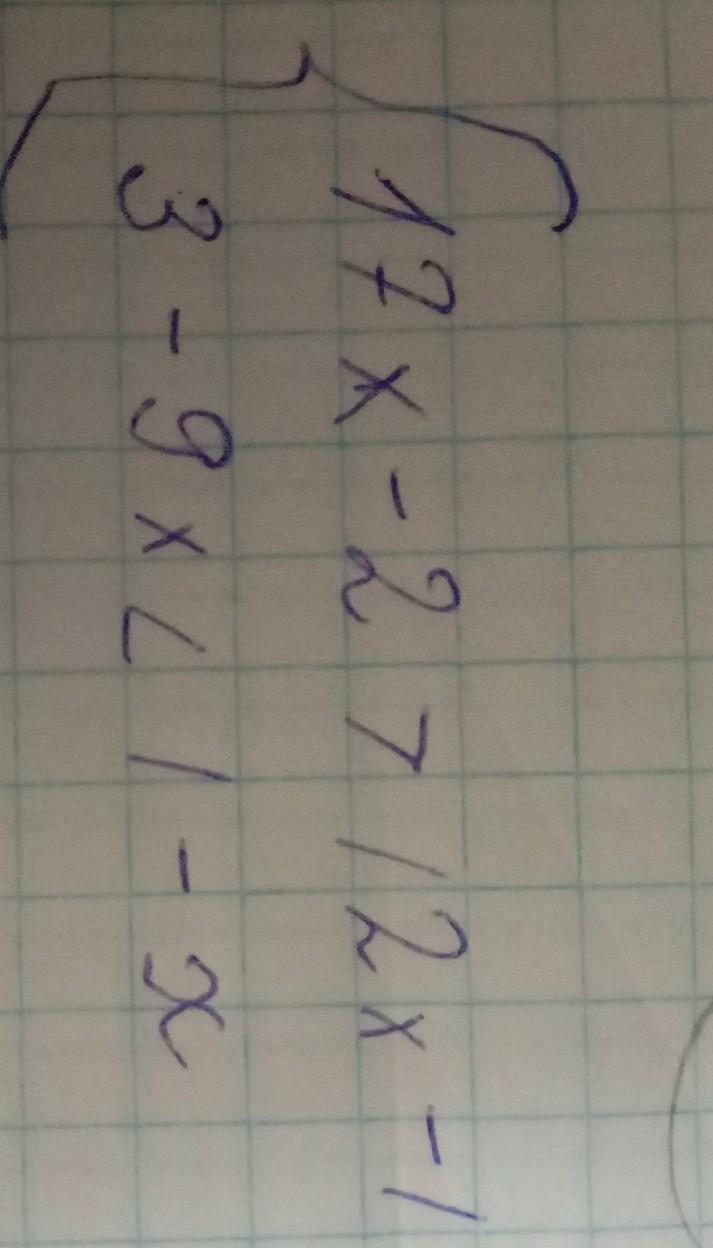 17x-2>12x-1
3-9x<1-x